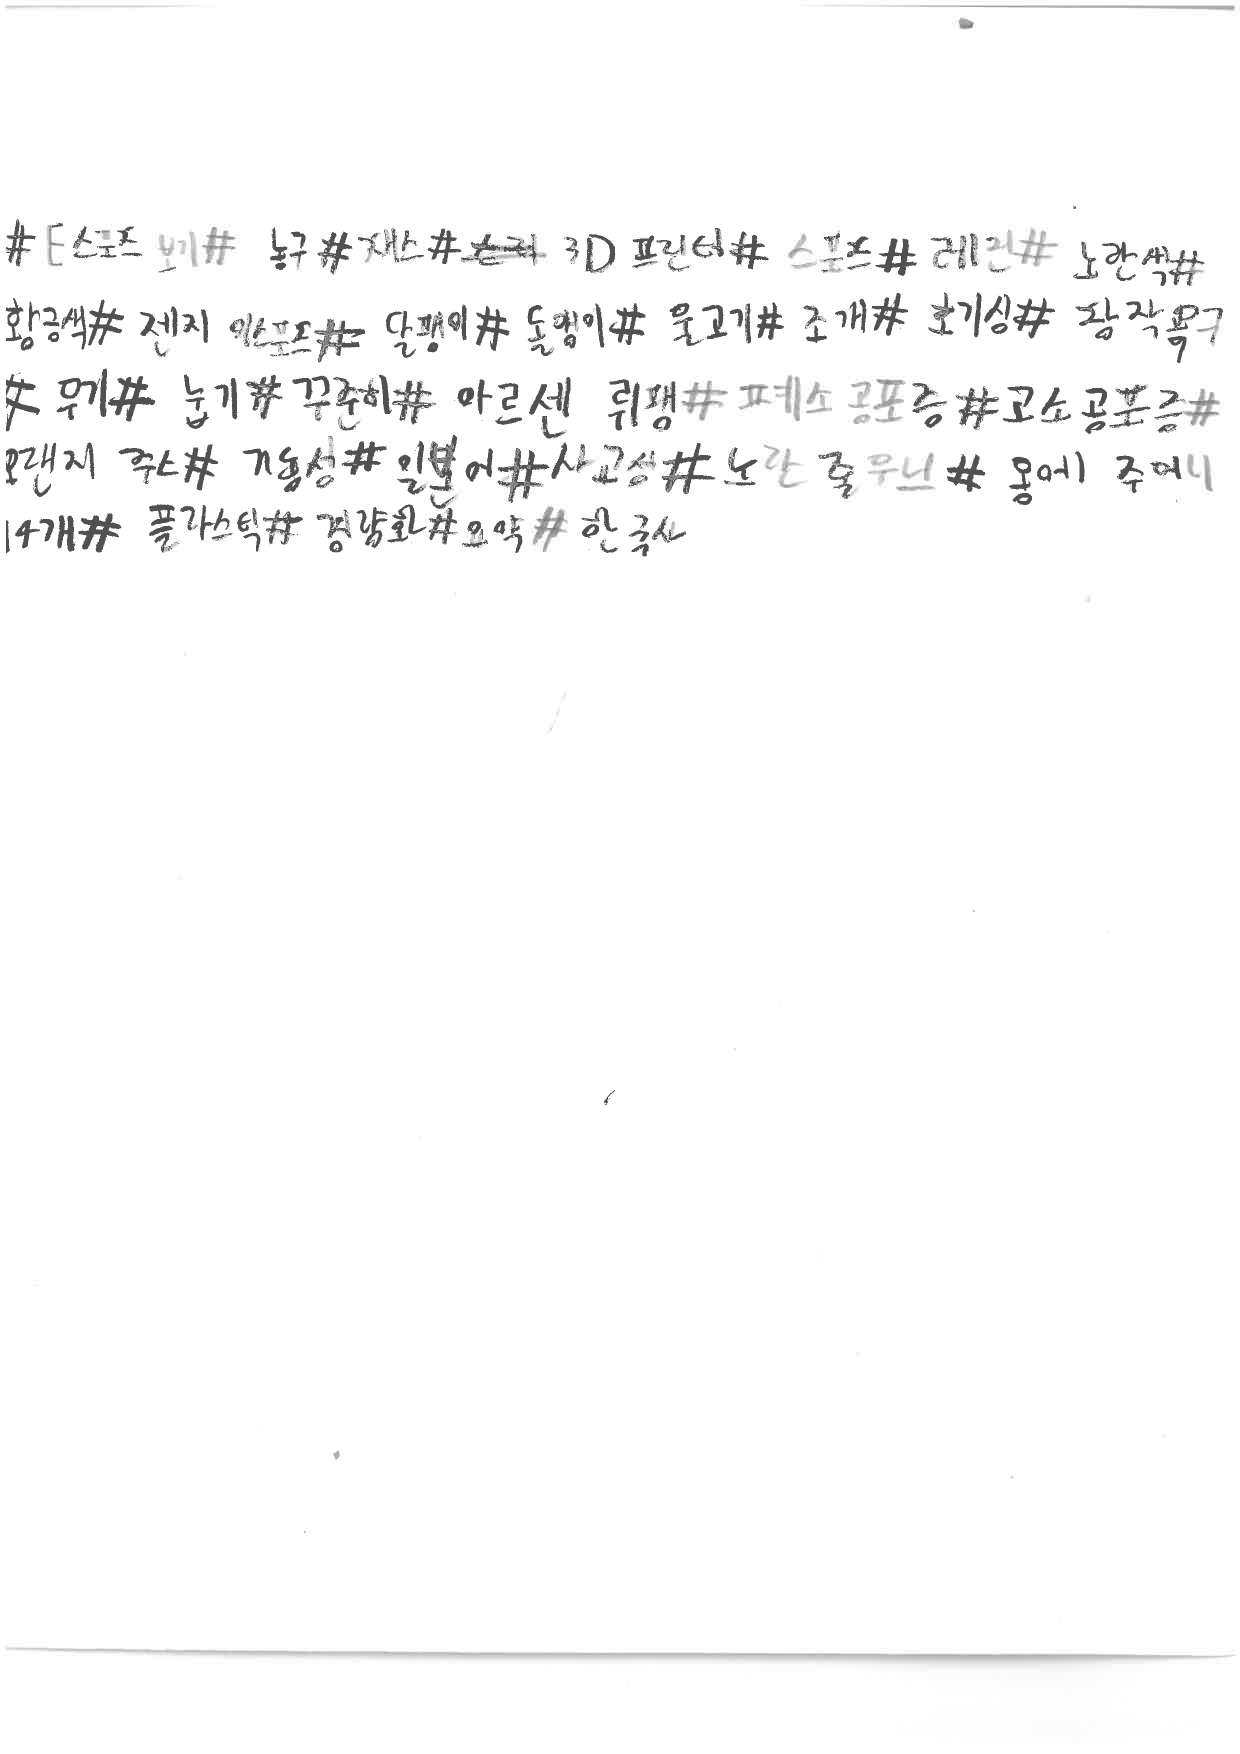 # E스포츠 보기# 농구#재스# 3D 프린터# 스포츠# 레진# 노란색#
황금색# 젠지 이스포츠# 달팽이# 돌멩이# 물고기# 조개# 호기심# 창작욕구
# 무기# 눕기# 꾸준히# 아르센 뤼팽# 폐소공포증#고소공포증#
오랜지 주스# 기능성# 일본어#사교성# 노란 줄무늬# 몸에 주머니
14개# 플라스틱# 경량화#요약# 한국사